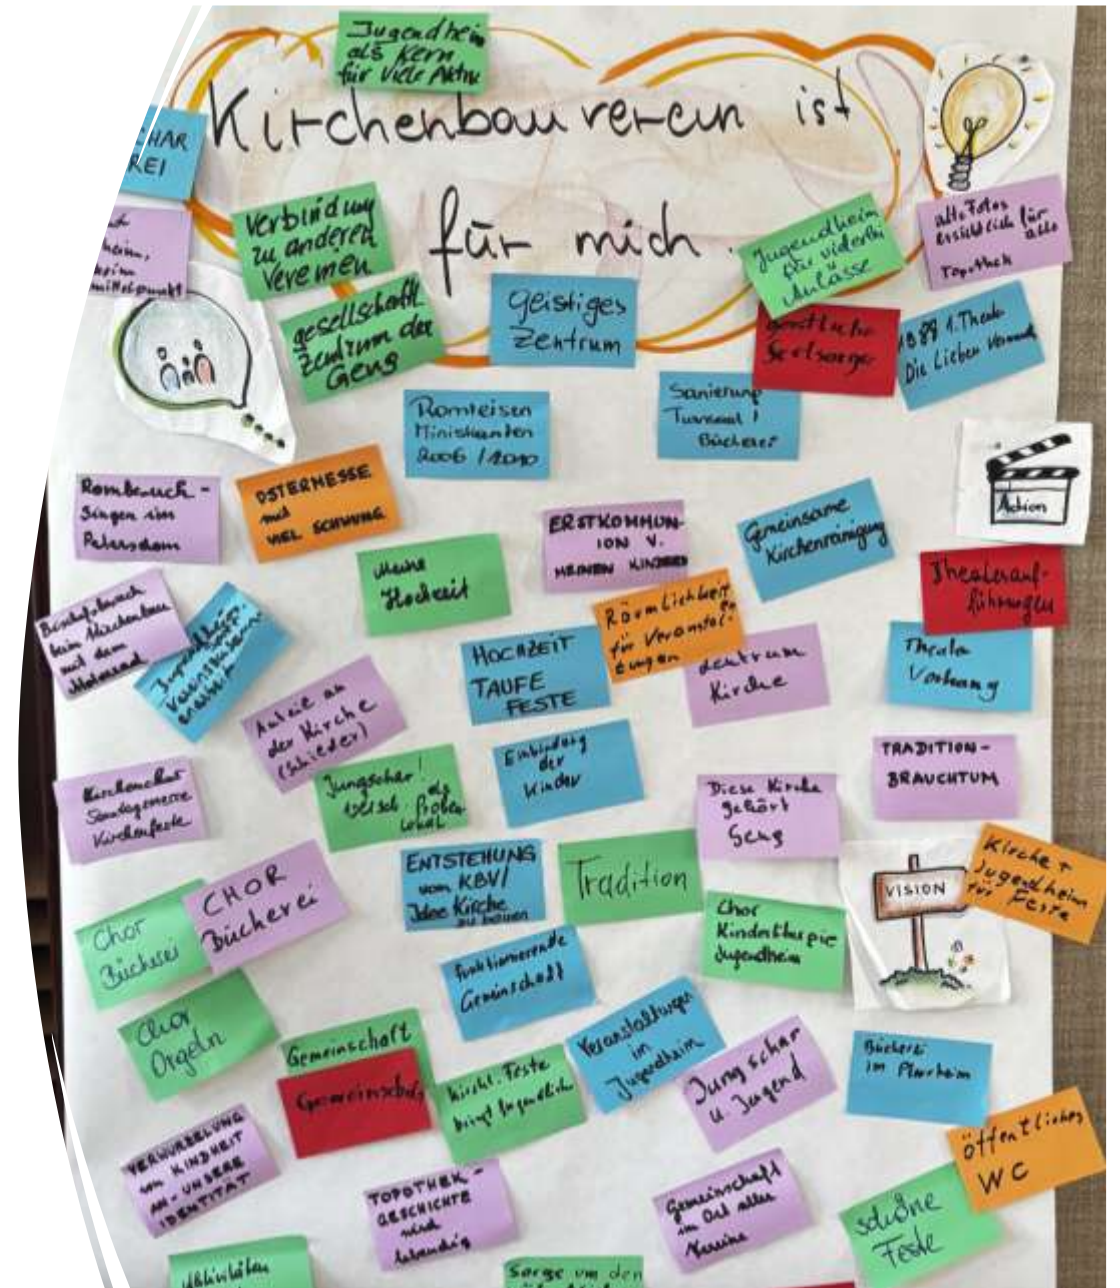 Jugendheim
als Kern
für viele Aktiv.
Kirchenbauverein ist
für mich.
CHAR
REI
mittelpunkt
Verbindung
zu anderen
Vereinen
gesellschaftl.
Zentrum der
Geng
geistiges
Zentrum
Jugendheim
für viderlei
Anlässe
alte Fotos
ersichtlich für
alle
Topothek
Seelsorger
1988 1. Theater
Die Lieben
Romreisen
Ministranten
2006 / 2010
Sanierung
Turnsaal /
Bücherei
Action
Rombesuch -
Singen im
Petersdom
OSTERMESSE
mit
VIEL SCHWUNG
Meine
Hochzeit
ERSTKOMMUN-
ION V.
MEINEN KINDERN
Gemeinsame
Kirchenreinigung
Theaterauf-
führungen
Bischofsbesuch
beim Kirchenbau
mit dem
Räumlichkeit
für Veranstal-
tungen
HOCHZEIT
TAUFE
FESTE
Zentrum
Kirche
Theater
Vorhang
der Kirche
(Schieder)
Einbindung
der
Kinder
TRADITION-
BRAUCHTUM
Kirchenchor
Sonntagsmesse
Kirchenfeste
Jungschar /
als Proben
lokal
Diese Kirche
gehört
Geng
ENTSTEHUNG
vom KBV/
Idee Kirche
zu bauen
Tradition
VISION
Kirche +
Jugendheim
für Feste
CHOR
Bücherei
Chor
Bücherei
Chor
Kinderliturgie
Jugendheim
funktionierende
Gemeinschaft
Chor
Orgeln
Gemeinschaft
Gemeinschaft
kirchl. Feste
bringt Jugendlich
Veranstaltungen
im
Jugendheim
Jungschar
u. Jugend
Bücherei
im Pfarrheim
VERWURZELUNG
IN KINDHEIT
UNSERE
IDENTITÄT
TOPOTHEK -
GESCHICHTE
wird
lebendig
Gemeinschaft
im Ort aller
Vereine
öffentliches
WC
schöne
Feste
Aktivitäten
Sorge um den